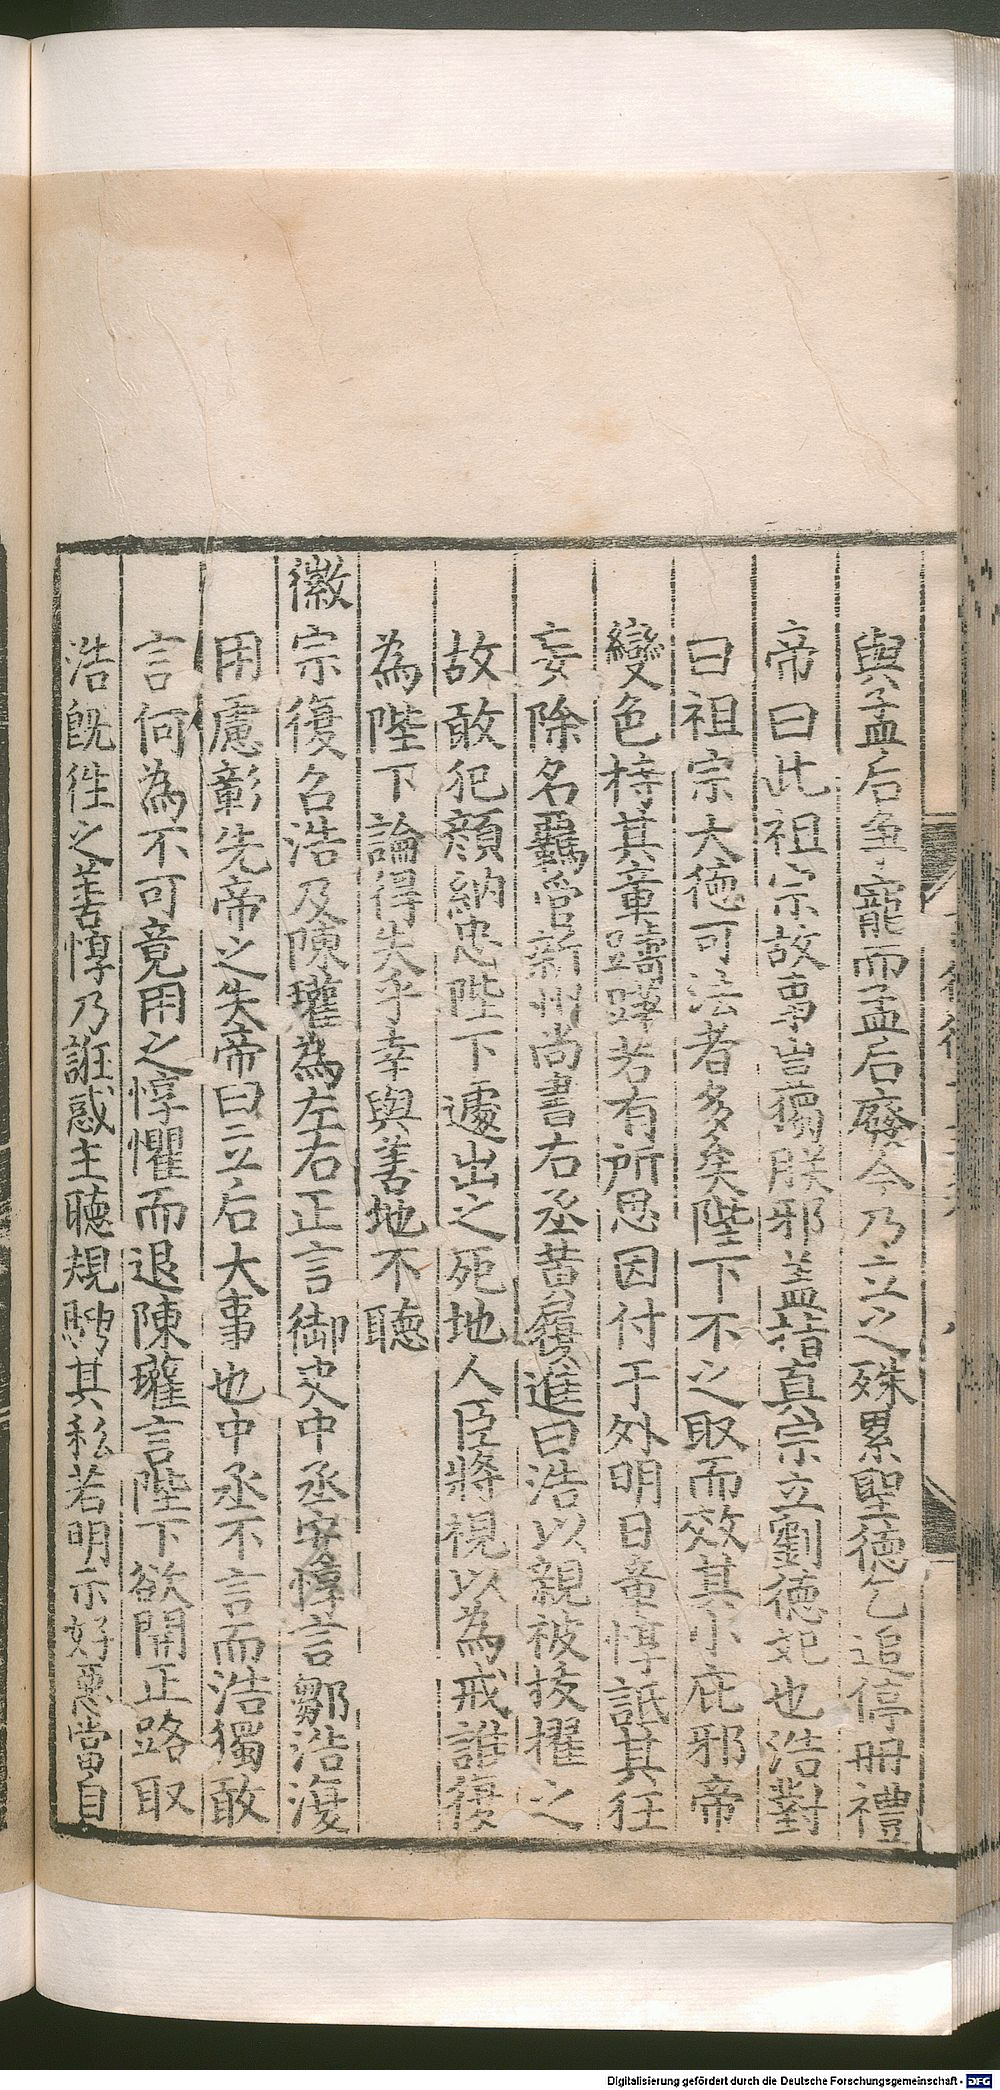 與孟后爭寵而孟后廢今乃立之殊累聖德乞追停冊禮
帝曰此祖宗故事豈獨朕邪盖指真宗立劉德妃也浩對
曰祖宗大德可法者多矣陛下不之取而效其小庇邪帝
變色持其章躊躇若有所思因付于外明日章惇詆其狂
妄除名羈管新州尚書右丞黄履進曰浩以親被拔擢之
故敢犯顔納忠陛下遽出之死地人臣將視以為戒誰復
為陛下論得失乎幸與善地不聽
徽宗復召浩及陳瓘為左右正言御史中丞安惇言鄒浩復
用慮彰先帝之失帝曰立后大事也中丞不言而浩獨敢
言何為不可竟用之惇懼而退陳瓘言陛下欲開正路取
浩旣徃之善惇乃誑惑主聽規騁其私若明示好惡當自
Digitalisierung gefördert durch die Deutsche Forschungsgemeinschaft - DFG